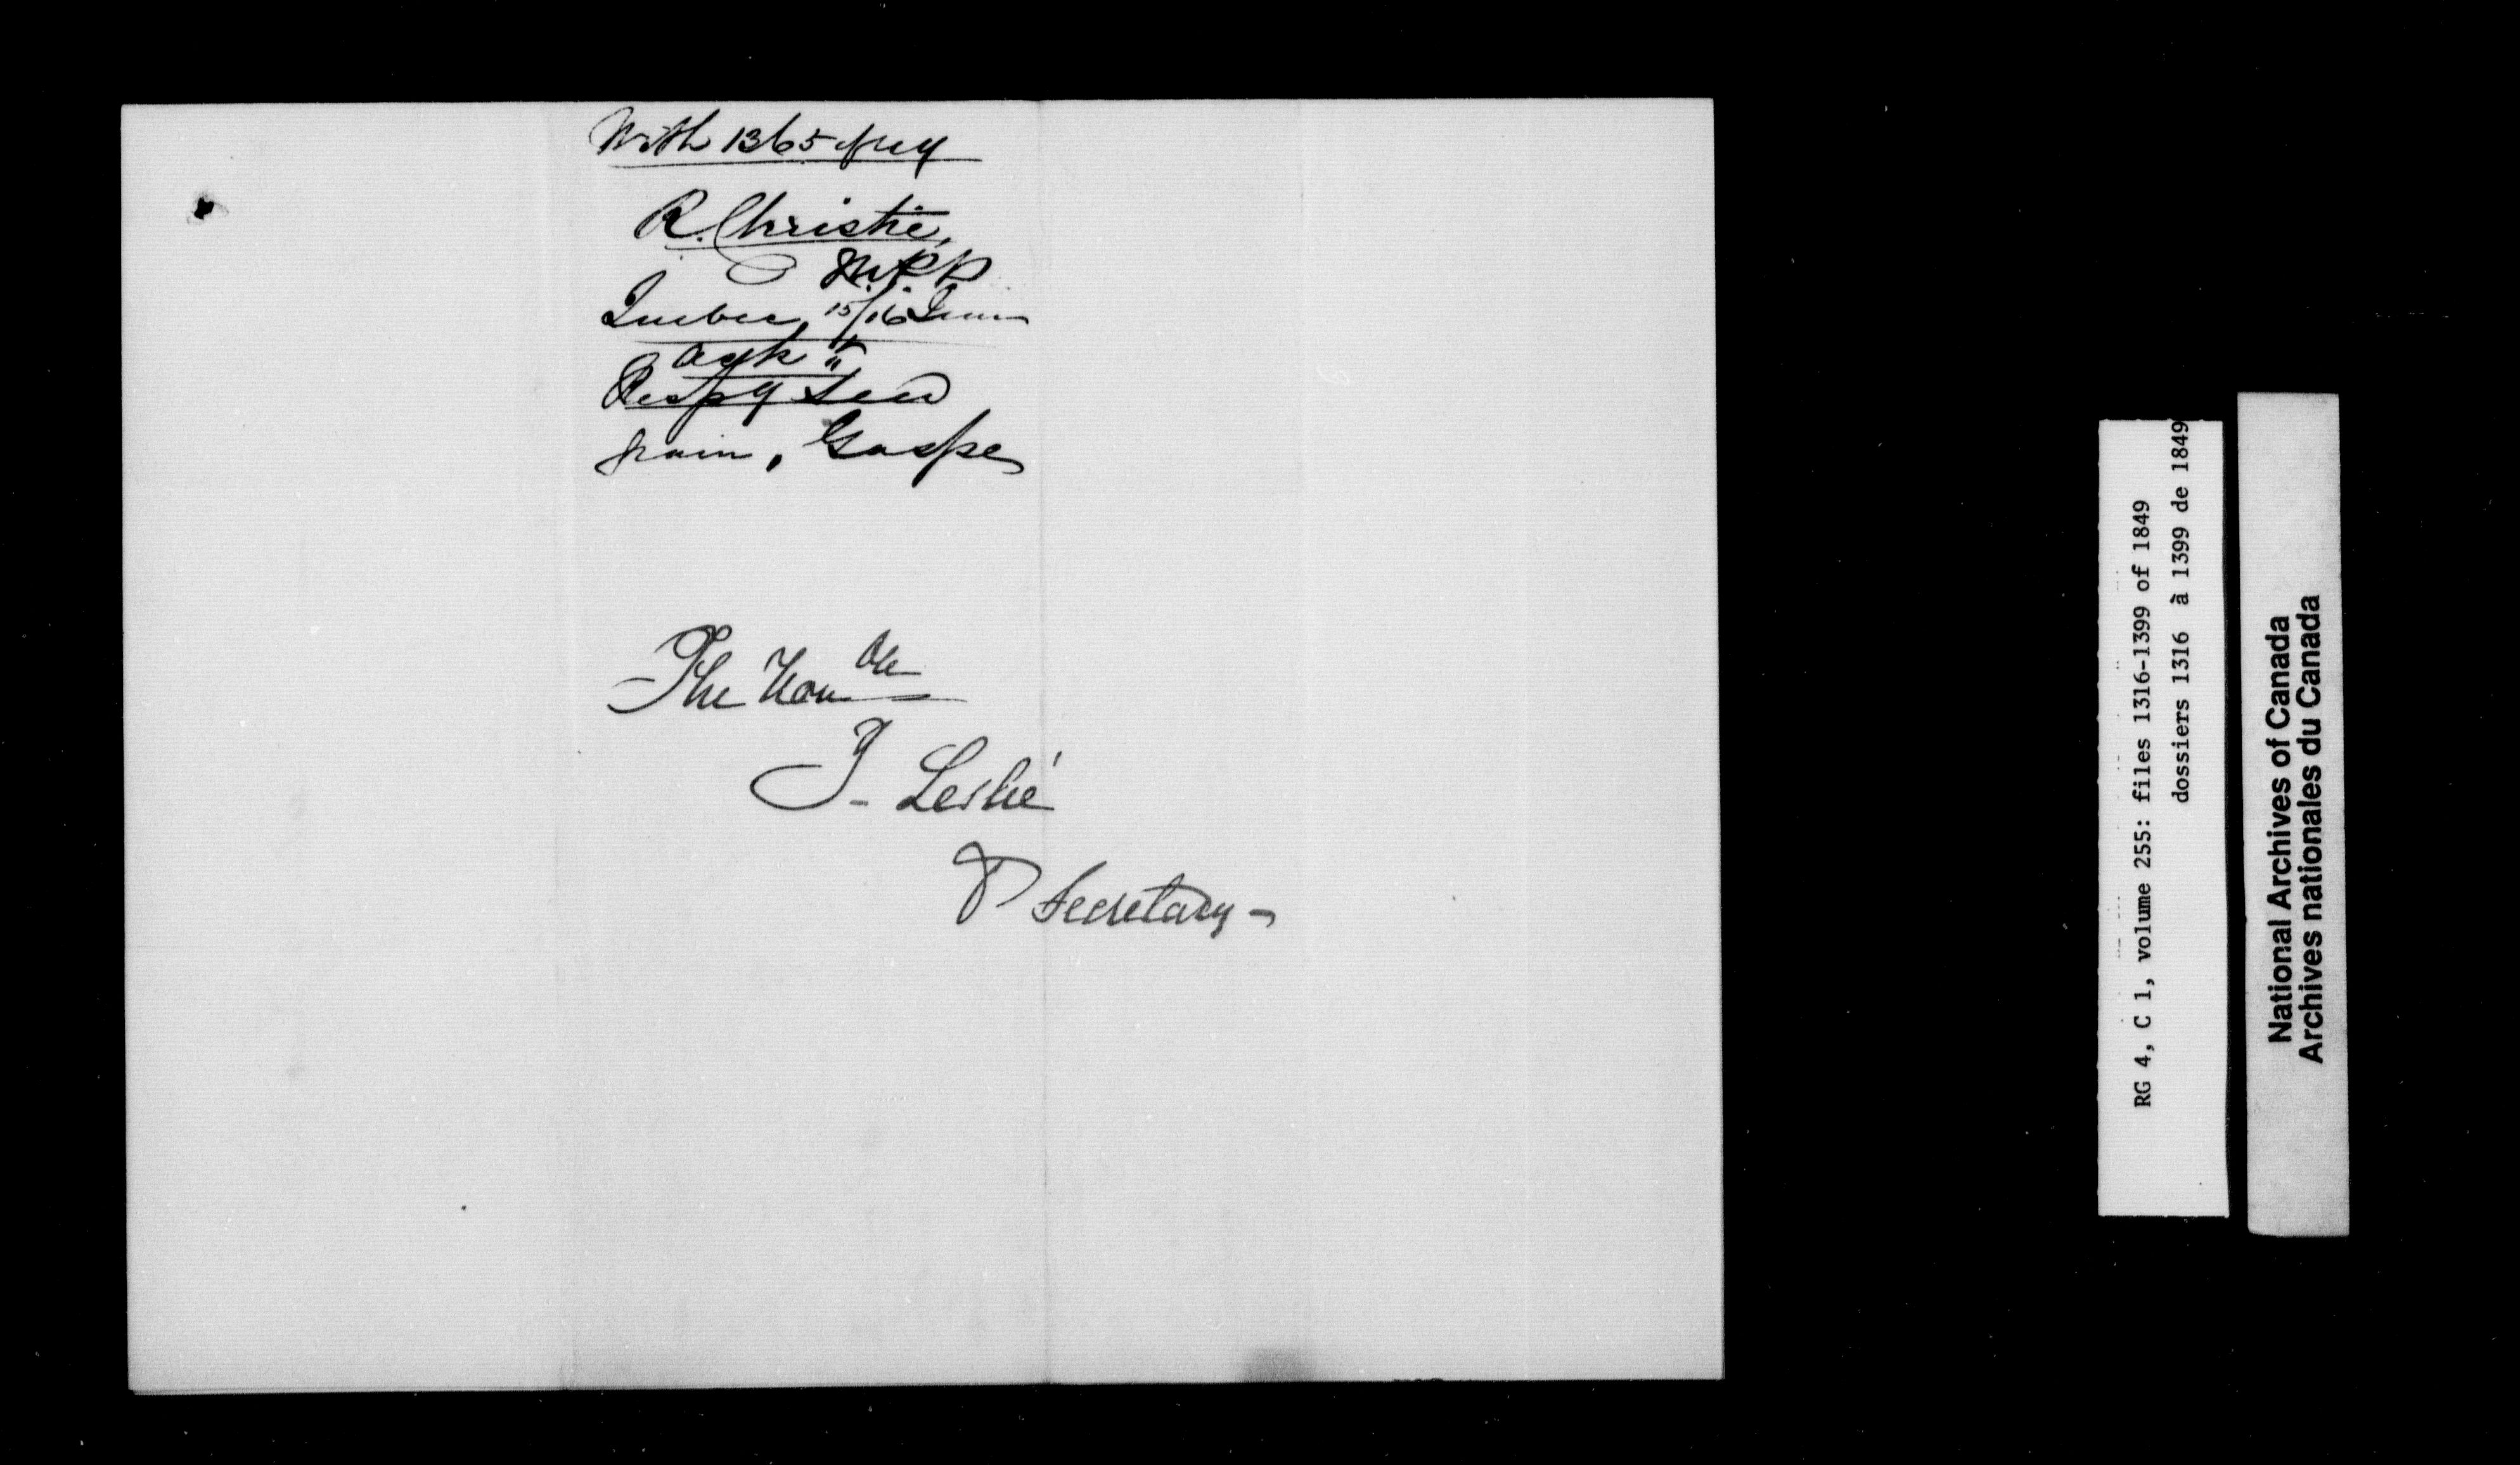 With 1365 of 49
R. Christie,
M.P.P.
Quebec, 15/16 June
Ack "
Respg Seed
grain, Gaspe
The Honble
J. Leslie
P Secretary -
RG 4, C 1, volume 255: files 1316-1399 of 1849
dossiers 1316 à 1399 de 1849
National Archives of Canada
Archives nationales du Canada